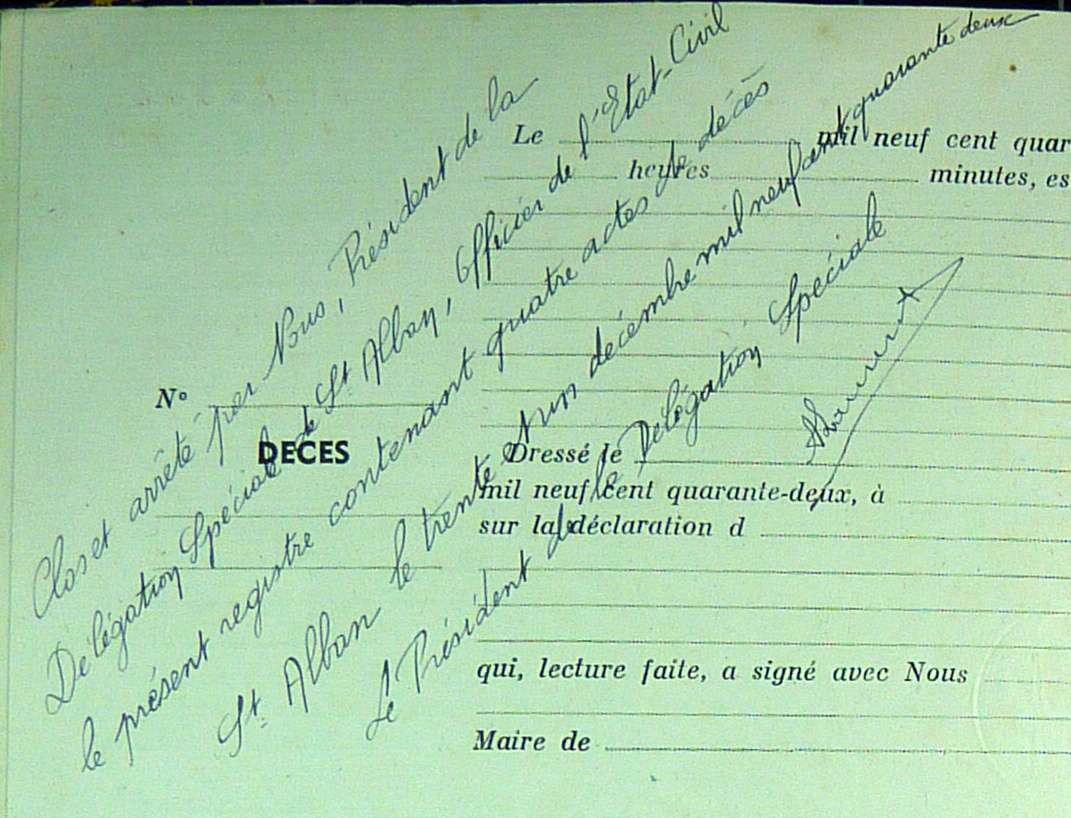 Clos et arrêté par Nous, Président de la
Délégation Spéciale de St. Alban, Officier de l'Etat-Civil
le présent registre contenant quatre actes de décès
St. Alban le trente et un décembre mil neuf cent quarante deux
Le Président de la Délégation Spéciale
N°
DECES
Le mil neuf cent quar
heures minutes, es
Dressé le
mil neuf cent quarante-deux, à
sur la déclaration d
qui, lecture faite, a signé avec Nous
Maire de